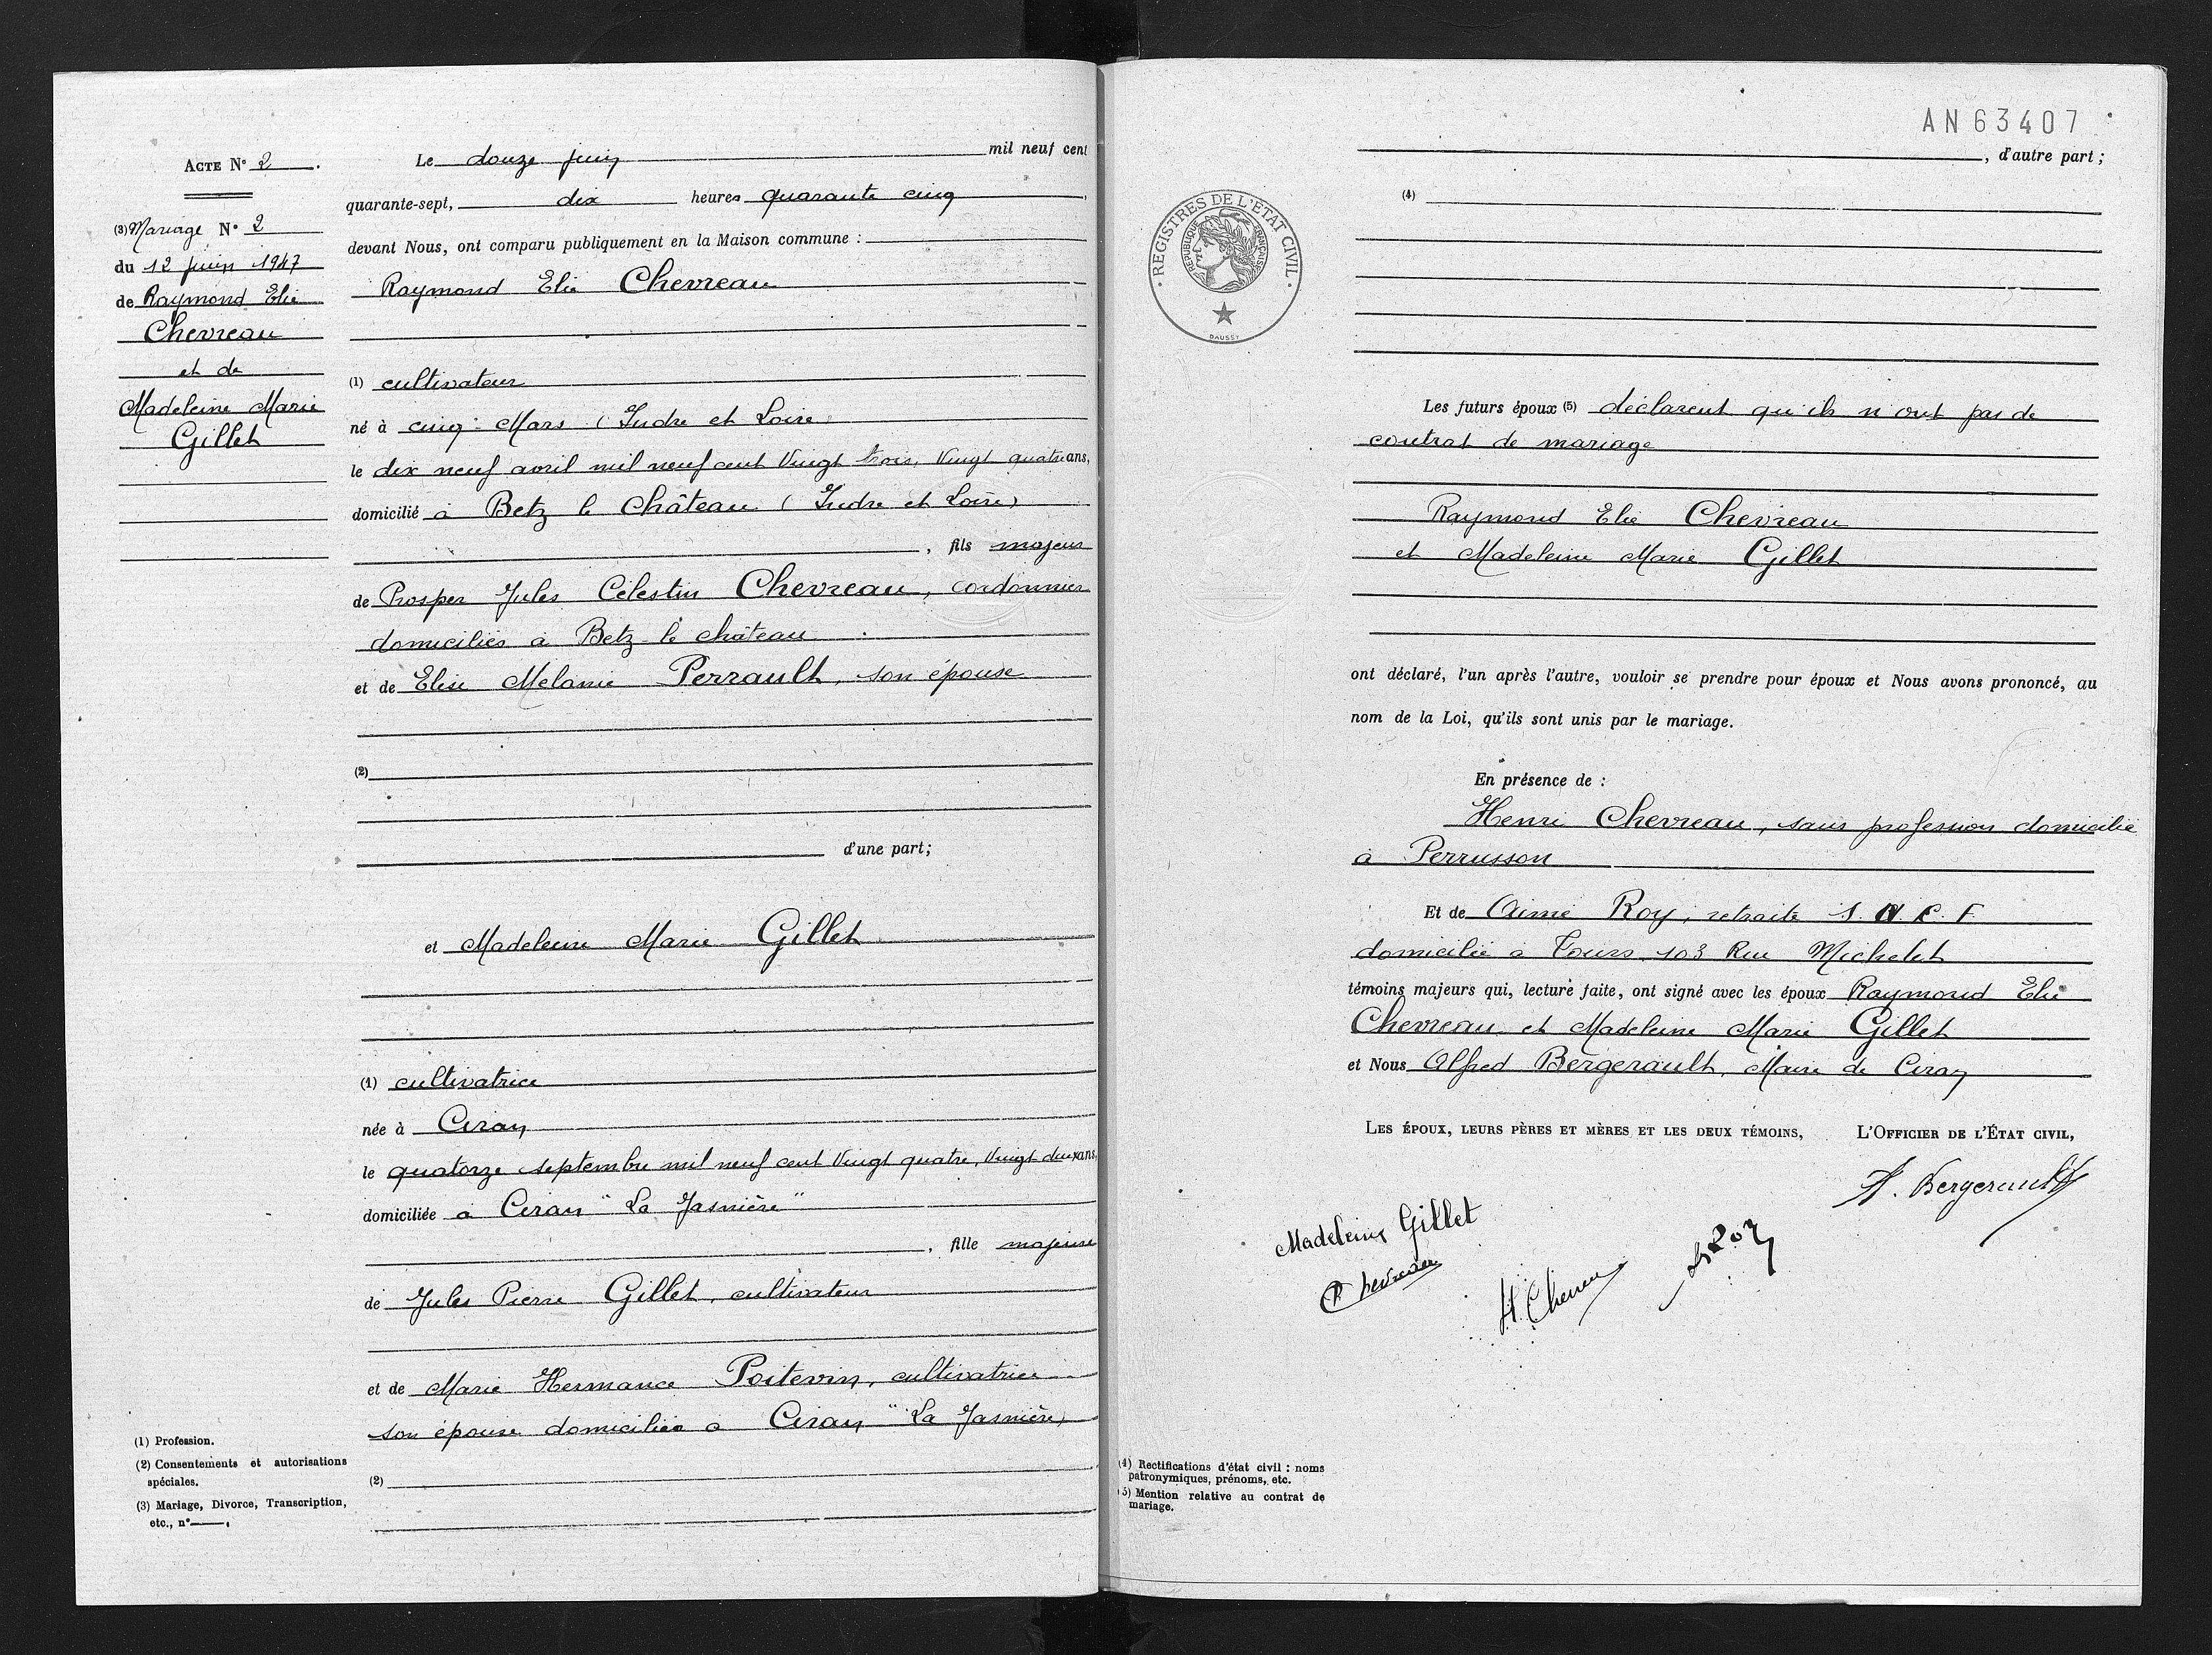 ACTE N° 2.
(3) Mariage N° 2
du 12 juin 1947
de Raymond Elie
Chevreau
et de
Madeleine Marie
Gillet
Le douze juin mil neuf cent
quarante-sept, dix heures quarante cinq,
devant Nous, ont comparu publiquement en la Maison commune :
Raymond Elie Chevreau
(1) cultivateur
né à cinq-Mars (Indre et Loire)
le dix neuf avril mil neuf cent vingt trois, vingt quatre ans,
domicilié à Betz le Château (Indre et Loire)
, fils majeur
de Prosper Jules Célestin Chevreau, cordonnier
domiciliés à Betz-le château
et de Elise Mélanie Perrault, son épouse
(2)
d'une part;
et Madeleine Marie Gillet
(1) cultivatrice
née à Ciran
le quatorze septembre mil neuf cent vingt quatre, vingt deux ans,
domiciliée à Ciran "La Jasnière"
, fille majeure
de Jules Pierre Gillet, cultivateur
et de Marie Hermance Poitevin, cultivatrice
son épouse domiciliés à Ciran "La Jasnière)
(2)
(1) Profession.
(2) Consentements et autorisations
spéciales.
(3) Mariage, Divorce, Transcription,
etc., n°
AN 63407
, d'autre part;
(4)
REGISTRES DE L'ETAT CIVIL
REPUBLIQUE FRANÇAISE
DAUSSY
Les futurs époux (5) déclarent qu'ils n'ont pas de
contrat de mariage
Raymond Elie Chevreau
et Madeleine Marie Gillet
ont déclaré, l'un après l'autre, vouloir se prendre pour époux et Nous avons prononcé, au
nom de la Loi, qu'ils sont unis par le mariage.
En présence de :
Henri Chevreau, sans profession domicilié
à Perrusson
Et de Aimé Roy, retraité S.N.C.F
domicilié à Tours 103 Rue Michelet
témoins majeurs qui, lecture faite, ont signé avec les époux Raymond Elie
Chevreau et Madeleine Marie Gillet
et Nous Alfred Bergerault, Maire de Ciran
LES ÉPOUX, LEURS PÈRES ET MÈRES ET LES DEUX TÉMOINS,
L'OFFICIER DE L'ÉTAT CIVIL,
A. Bergerault
Madeleine Gillet
Chevreau
H. Chevreau
Roy
(4) Rectifications d'état civil : noms
patronymiques, prénoms, etc.
(5) Mention relative au contrat de
mariage.